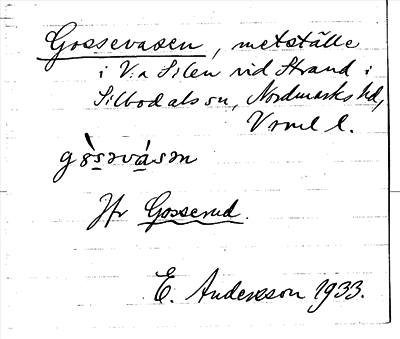 Gossevasen, metställe
i V:a Silen vid Strand i
Silbodals sn, Nordmarks hd,
Vrml l.
gòsəvásən
Jfr Gosserud.
E. Andersson 1933.